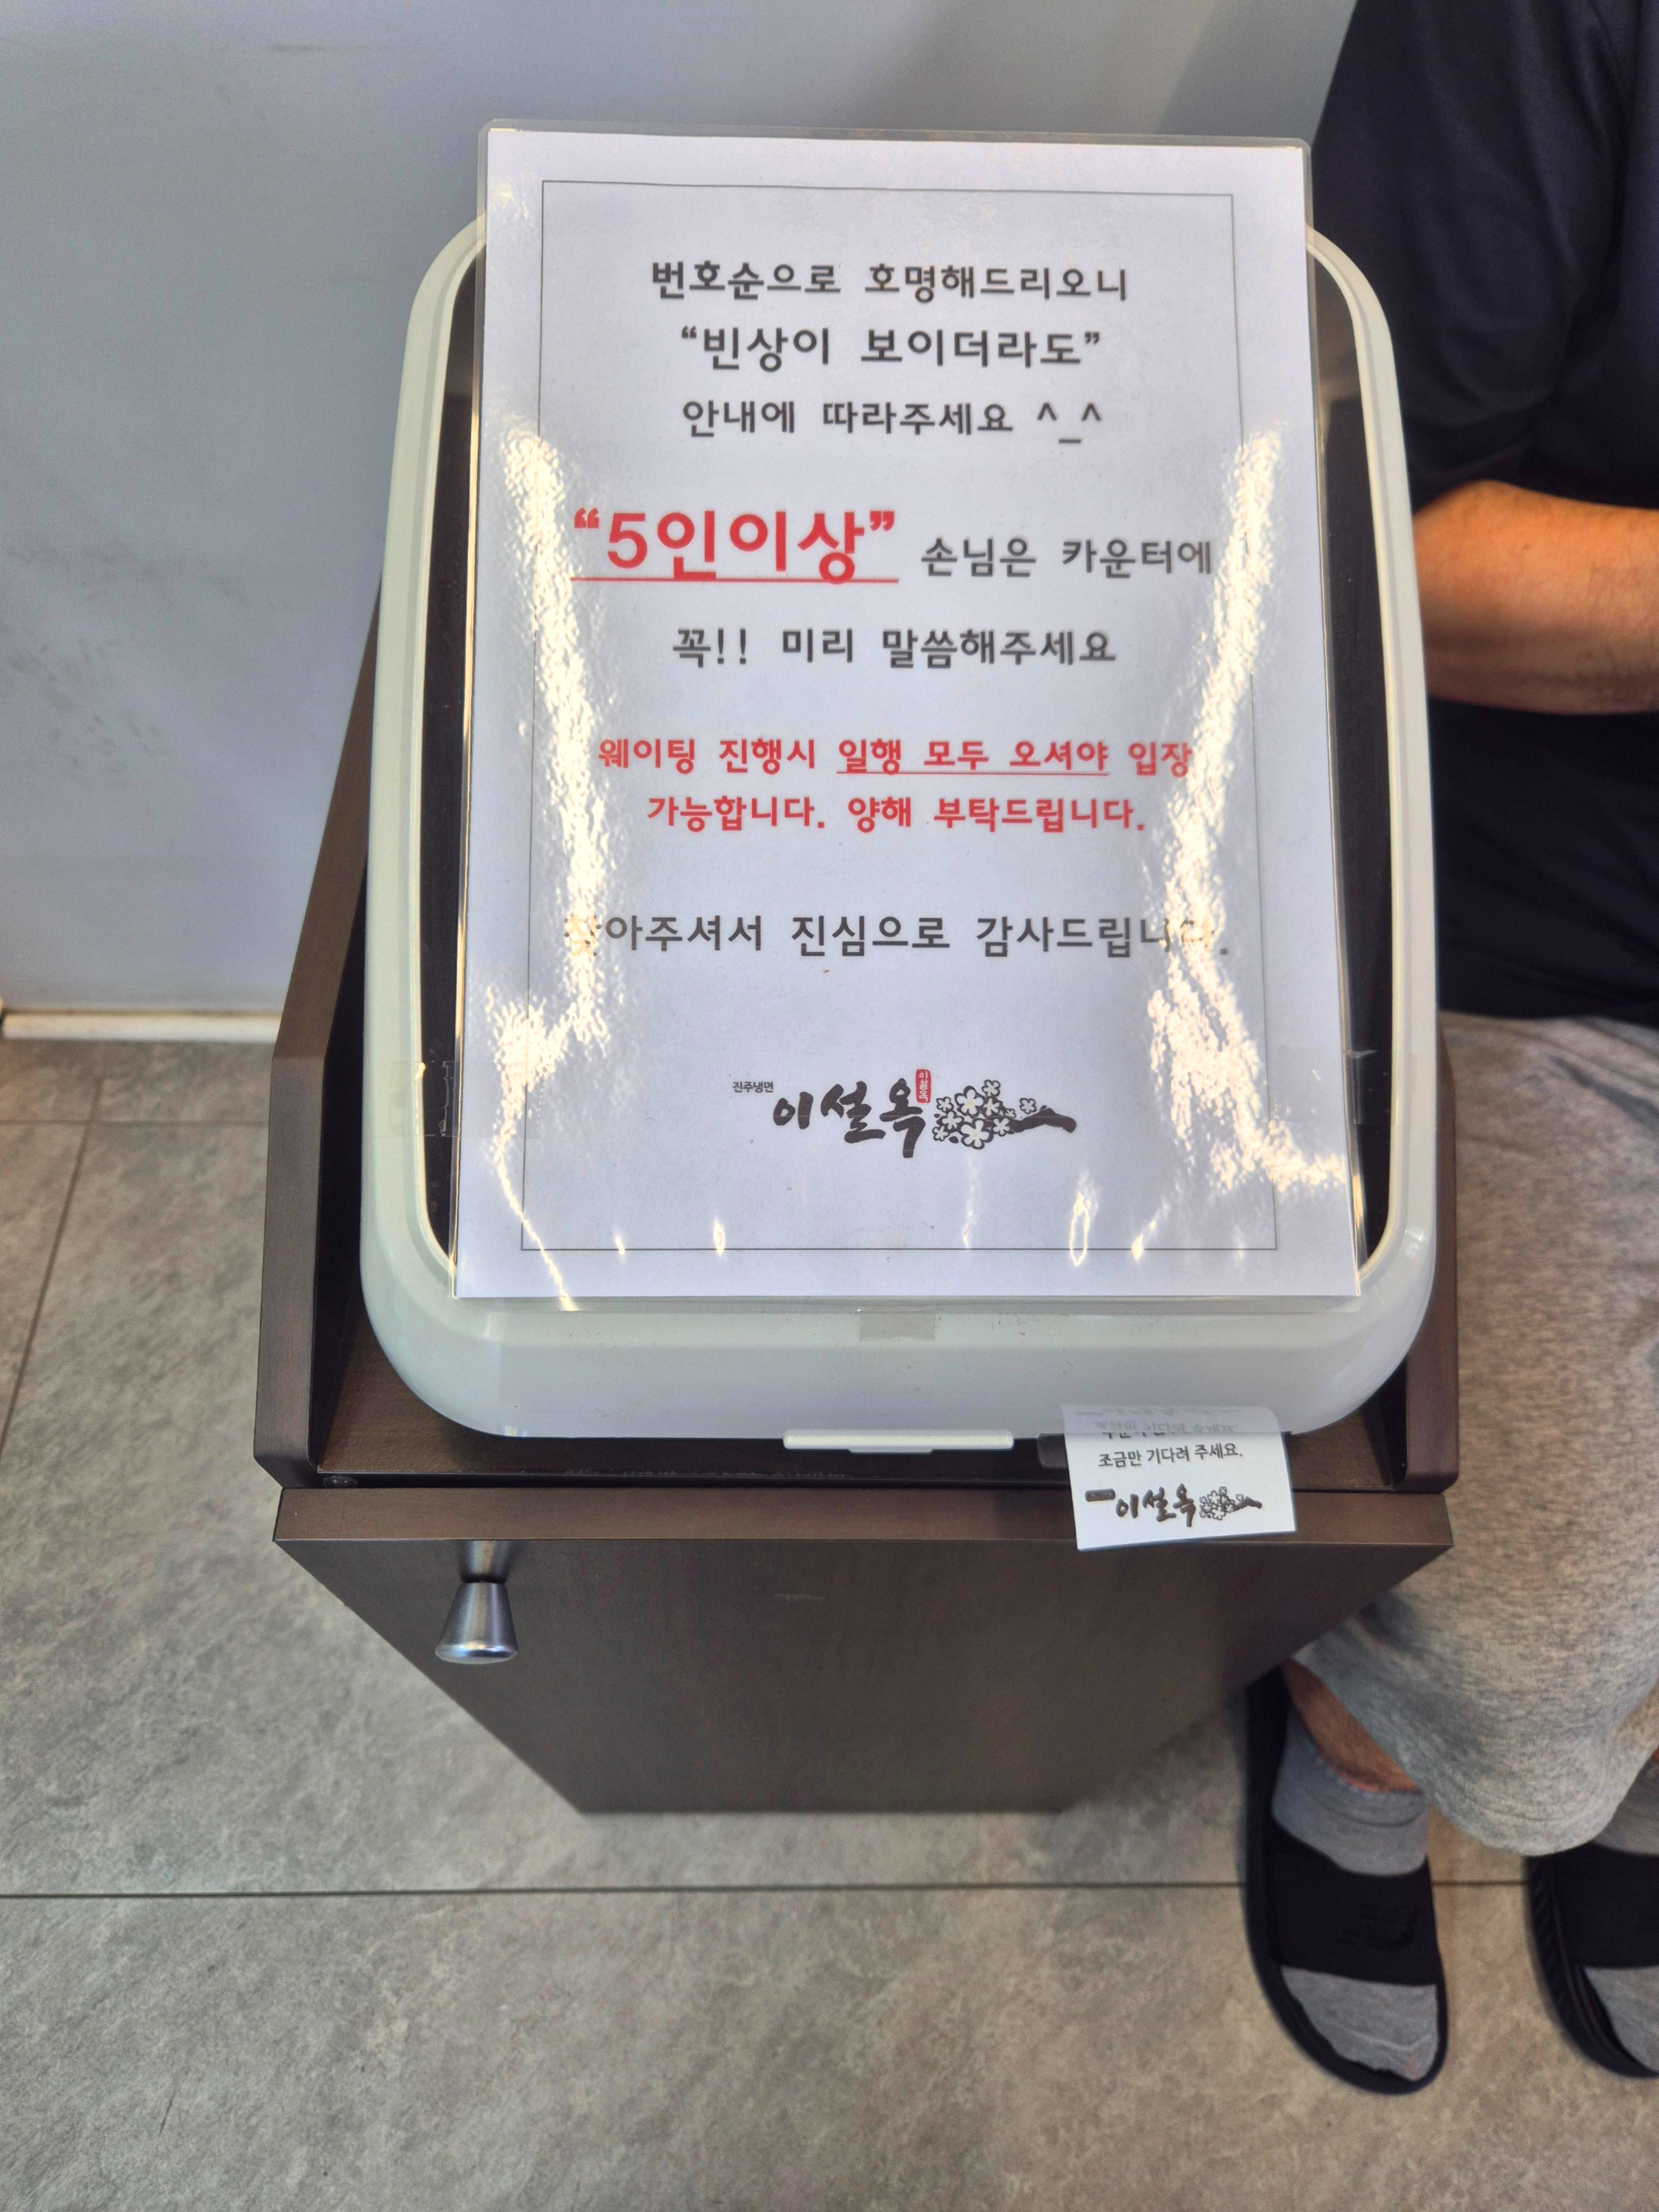 번호순으로 호명해드리오니
“빈상이 보이더라도”
안내에 따라주세요 ^_^
“5인이상” 손님은 카운터에
꼭!! 미리 말씀해주세요
웨이팅 진행시 일행 모두 오셔야 입장
가능합니다. 양해 부탁드립니다.
찾아주셔서 진심으로 감사드립니다.
진주냉면
이설옥
이설옥
조금만 기다려 주세요.
이설옥